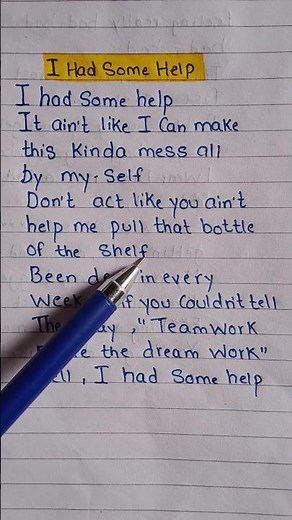 I Had Some Help
I had Some help
It ain't like I Can make
this Kinda mess all
by my-Self
Don't act like you ain't
help me pull that bottle
of the Shelf
Been in every
Week if you Couldn't tell
"TeamWork
the dream Work"
, I had Some help